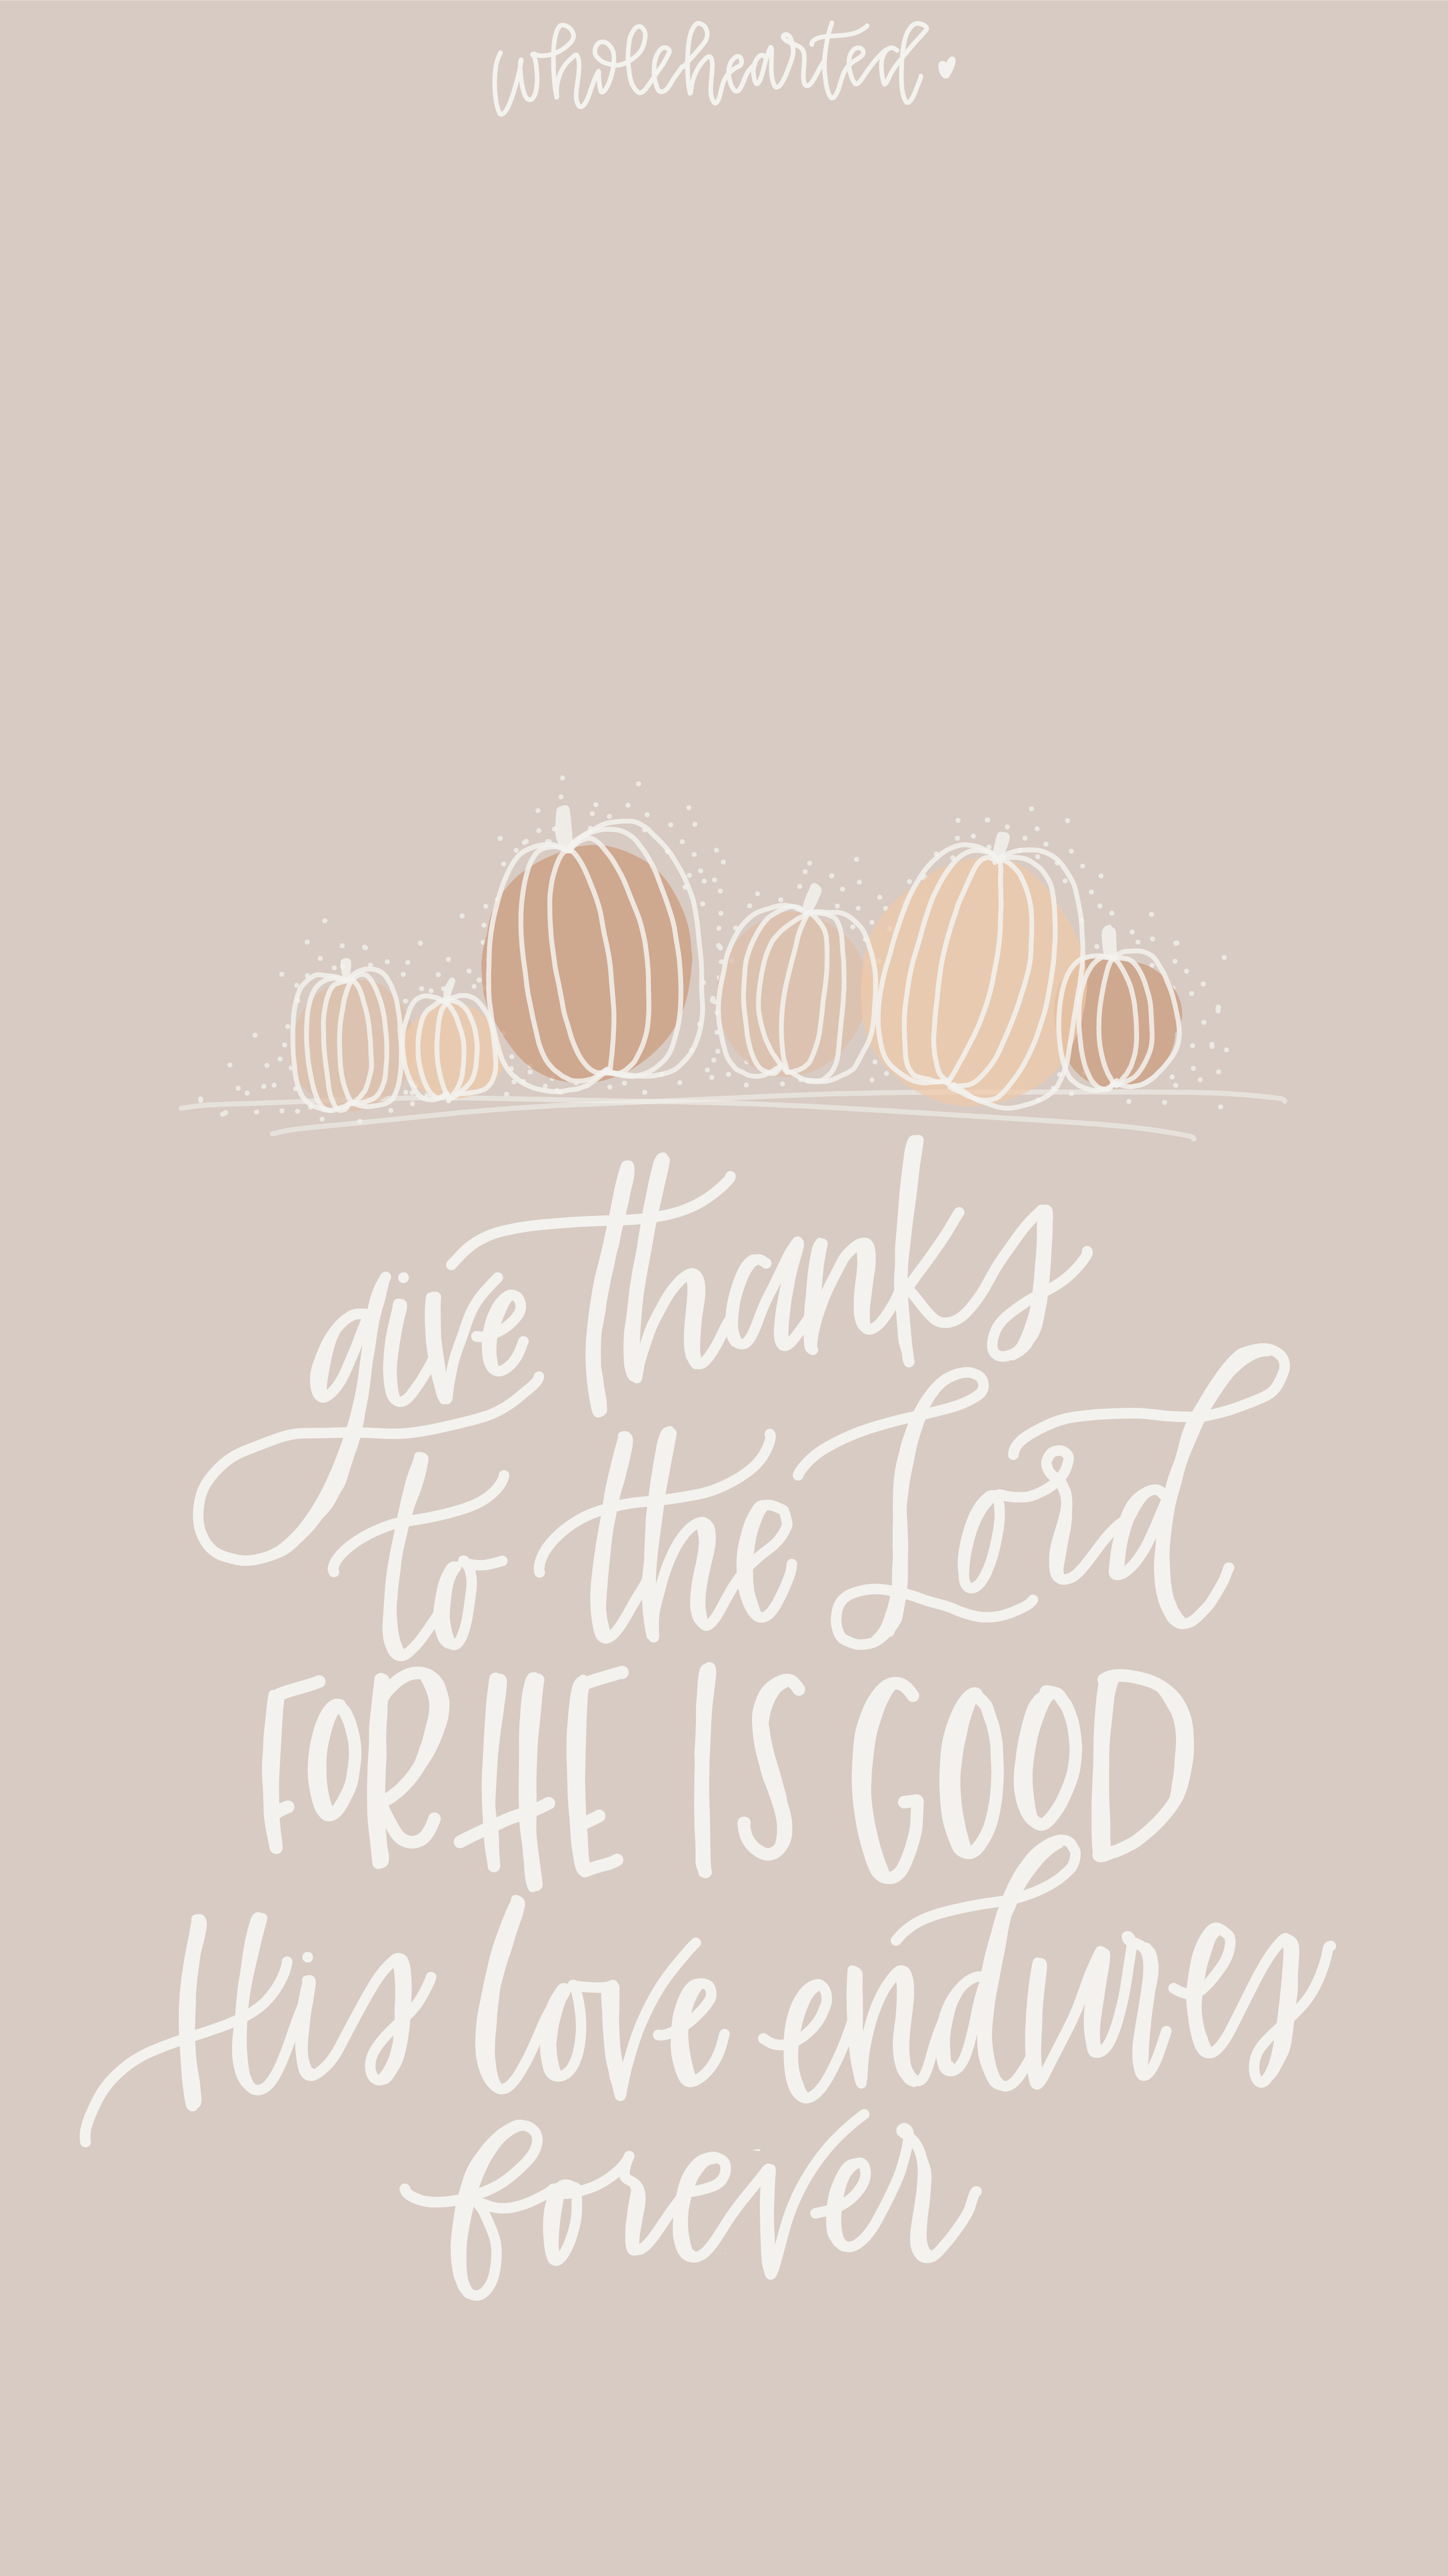 wholehearted.
give thanks
to the Lord
FOR HE IS GOOD
His love endures
forever